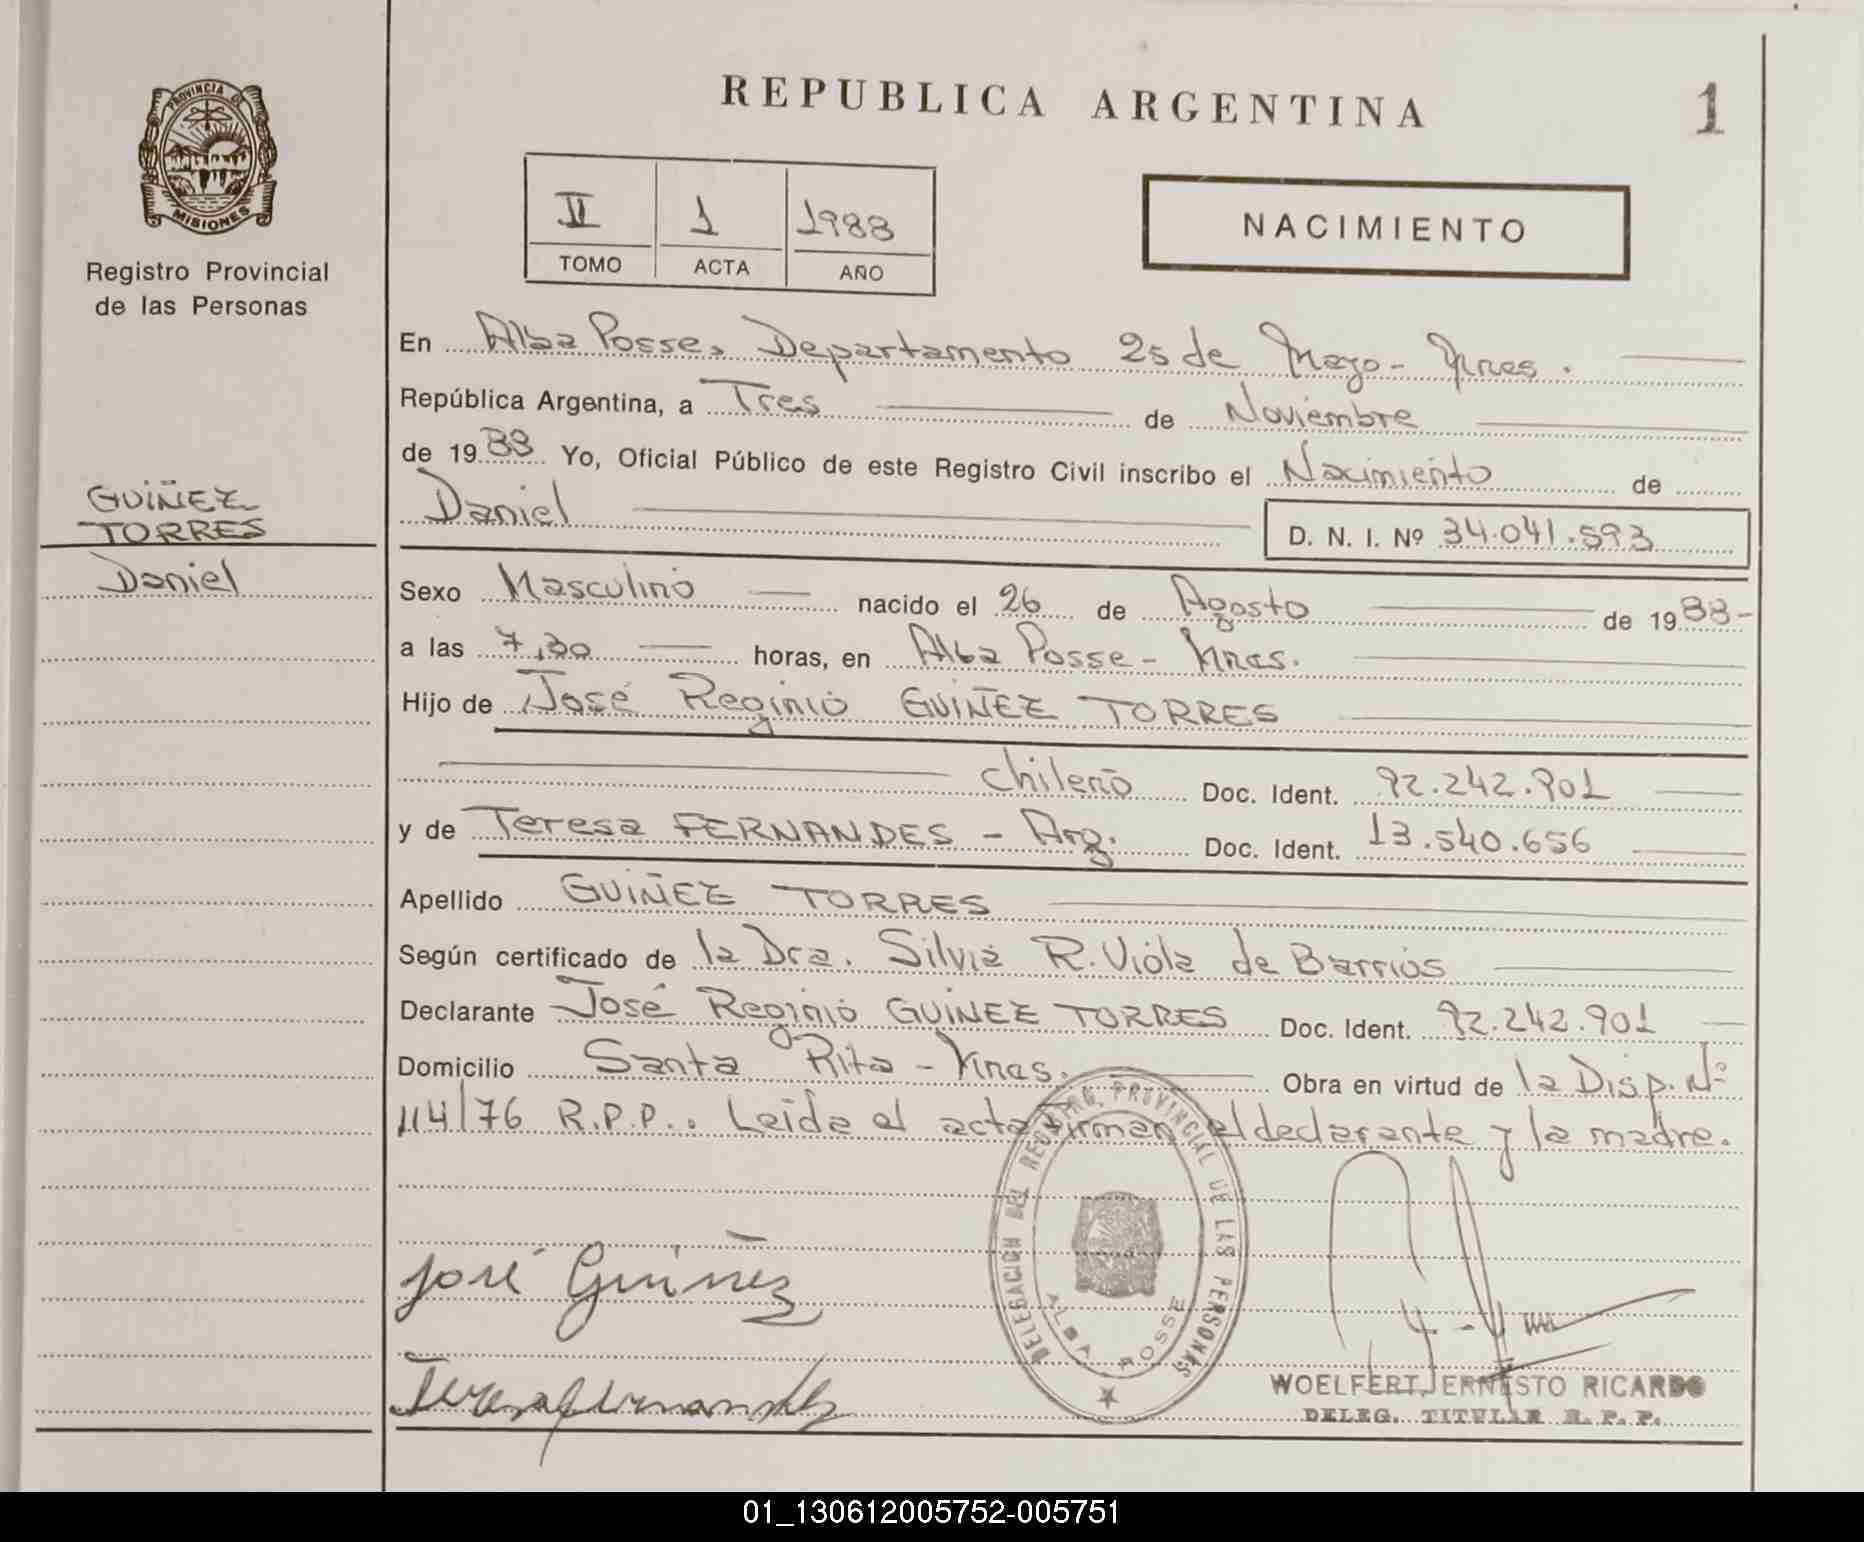 REPUBLICA ARGENTINA
1
PROVINCIA DE
MISIONES
Registro Provincial
de las Personas
II 1 1988
TOMO ACTA AÑO
NACIMIENTO
En Alba Posse, Departamento 25 de Mayo - Mnes.
República Argentina, a Tres de Noviembre
de 1988 Yo, Oficial Público de este Registro Civil inscribo el Nacimiento de
Daniel D. N. I. Nº 34.041.593
GUIÑEZ
TORRES
Daniel
Sexo Masculino nacido el 26 de Agosto de 1988-
a las 7,30 horas, en Alba Posse - Mnes.
Hijo de José Reginio GUIÑEZ TORRES
chileno Doc. Ident. 92.242.901
y de Teresa FERNANDES - Arg. Doc. Ident. 13.540.656
Apellido GUIÑEZ TORRES
Según certificado de la Dra. Silvia R. Viola de Barrios
Declarante José Reginio GUIÑEZ TORRES Doc. Ident. 92.242.901
Domicilio Santa Rita - Mnes. Obra en virtud de la Disp. Nº
114/76 R.P.P.. Leída el acta firman el declarante y la madre.
DELEGACION DEL REGISTRO PROVINCIAL DE LAS PERSONAS
ALBA POSSE
José Guiñez
Teresa Fernandes
WOELFERT, ERNESTO RICARDO
DELEG. TITULAR R. P. P.
01_130612005752-005751